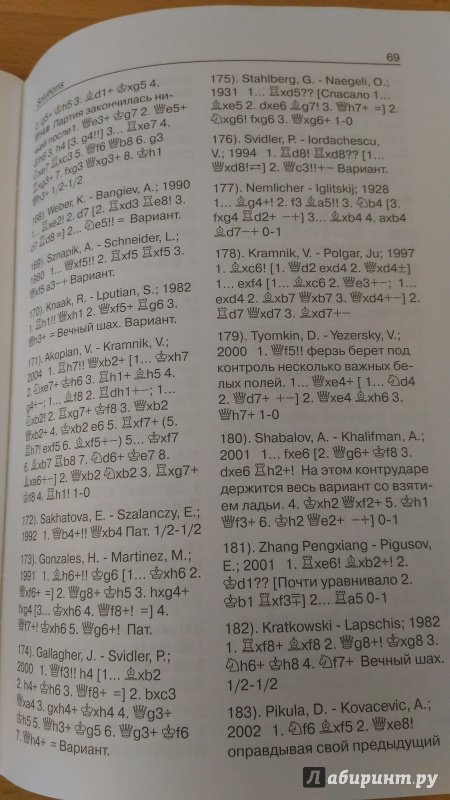 Solutions
69
2. g6+ ♔h5 3. ♗d1+ ♔xg5 4.
Партия закончилась ни-
после1. ♕e3+ ♔g7 2. ♕e5+
♔g6 3. h4 [3. g4!!] 3... ♖xe7 4.
♕xe7 ♖xc3 5. ♕f6 ♕b8 6. g3
♖xg3+ 7. fxg3 ♕xg3+ 8. ♔h1
♕h3+ 1/2-1/2
168). Weber, K. - Bangiev, A.; 1990
1... ♖xe2! 2. d7 [2. ♖xd3 ♖e8! 3.
d7 ♖d8 =] 2... ♘e5!! = Вариант.
169). Sznapik, A. - Schneider, L.;
1980 1... ♕xf5!! 2. ♖xf5 ♖xf5 3.
♕xf5 a3−+ Вариант.
170). Knaak, R. - Lputian, S.; 1982
1. ♖h1!! ♕xh1 2. ♕xf5+ ♖g6 3.
♕h3+ = Вечный шах. Вариант.
171). Akopian, V. - Kramnik, V.;
2004 1. ♖h7!! ♕xb2+ [1... ♔xh7
2. ♘xe7+ ♔h6 3. ♖h1+ ♗h5 4.
g4+−; 1... ♗f8 2. ♖dh1+−; 1...
♘xb2! 2. ♖xg7+ ♔f8 3. ♕xb2
♕xb2+ 4. ♔xb2 e6 5. ♖xf7+ (5.
♖h7! exf5 6. ♗xf5+−) 5... ♔xf7
6. ♗xb7 ♖b8 7. ♘d6+ ♔e7 8.
♗xa6+−] 2. ♕xb2 ♘xb2 3. ♖xg7+
♔f8 4. ♖h1! 1-0
172). Sakhatova, E. - Szalanczy, E.;
1992 1. ♕b4+!! ♕xb4 Пат. 1/2-1/2
173). Gonzales, H. - Martinez, M.;
1991 1. ♗h6+!! ♔g6 [1... ♔xh6 2.
♕xf6+ =] 2. ♕g8+ ♔h5 3. hxg4+
fxg4 [3... ♔xh6 4. ♕f8+! =] 4.
♕f7+! ♔xh6 5. ♕g6+! Пат.
174). Gallagher, J. - Svidler, P.;
2000 1. ♕f3!! h4 [1... ♗xb2
2. h4+ ♔h6 3. ♕f8+ =] 2. bxc3
♕xa4 3. gxh4+ ♔xh4 4. ♕g3+
♔h5 5. ♕h3+ ♔g5 6. ♕g3+ ♔f6
7. ♕h4+ = Вариант.
175). Stahlberg, G. - Naegeli, O.;
1931 1... ♖xd5?? [Спасало 1...
♗xe5 2. dxe6 ♗g7! 3. ♕h7+ =] 2.
♘xg6! fxg6 3. ♕xg6+ 1-0
176). Svidler, P. - Iordachescu,
V.; 1994 1. ♖d8! ♖xd8?? [1...
♕xd8!⇄] 2. ♕c3!!+− Вариант.
177). Nemlicher - Iglitskij; 1928
1... ♗g4+! 2. f3 ♗a5!! 3. ♘b4 [3.
fxg4 ♖d2+ −+] 3... ♗xb4 4. axb4
♗d7−+ 0-1
178). Kramnik, V. - Polgar, Ju; 1997
1. ♗xc6! [1. ♕d2 exd4 2. ♕xd4±]
1... exf4 [1... ♗xc6 2. ♕e3+−; 1...
exd4 2. ♗xb7 ♕xb7 3. ♕xd4+−] 2.
♖d7 ♕xd7 3. ♗xd7+−
179). Tyomkin, D. - Yezersky, V.;
2000 1. ♕f5!! ферзь берет под
контроль несколько важных бе-
лых полей. 1... ♕xe4+ [ 1... ♘d4
2. ♕d7+ +−] 2. ♕xe4 ♗xh6 3.
♕h7+ 1-0
180). Shabalov, A. - Khalifman, A.;
2001 1... fxe6 [2. ♕g6+ ♔f8 3.
dxe6 ♖h2+! На этом контрударе
держится весь вариант со взяти-
ем ладьи. 4. ♔xh2 ♕xf2+ 5. ♔h1
♕f3+ 6. ♔h2 ♕e2+ −+] 0-1
181). Zhang Pengxiang - Pigusov,
E.; 2001 1... ♖xe6! ♗xb2+! 2.
♔d1?? [Почти уравнивало 2.
♔b1 ♖xf3∓] 2... ♖a5 0-1
182). Kratkowski - Lapschis; 1982
1. ♖xf8+ ♗xf8 2. ♕g8+! ♔xg8 3.
♘h6+ ♔h8 4. ♘f7+ Вечный шах.
1/2-1/2
183). Pikula, D. - Kovacevic, A.;
2002 1. ♘f6 ♗xf5 2. ♕xe8!
оправдывая свой предыдущий
Лабиринт.ру